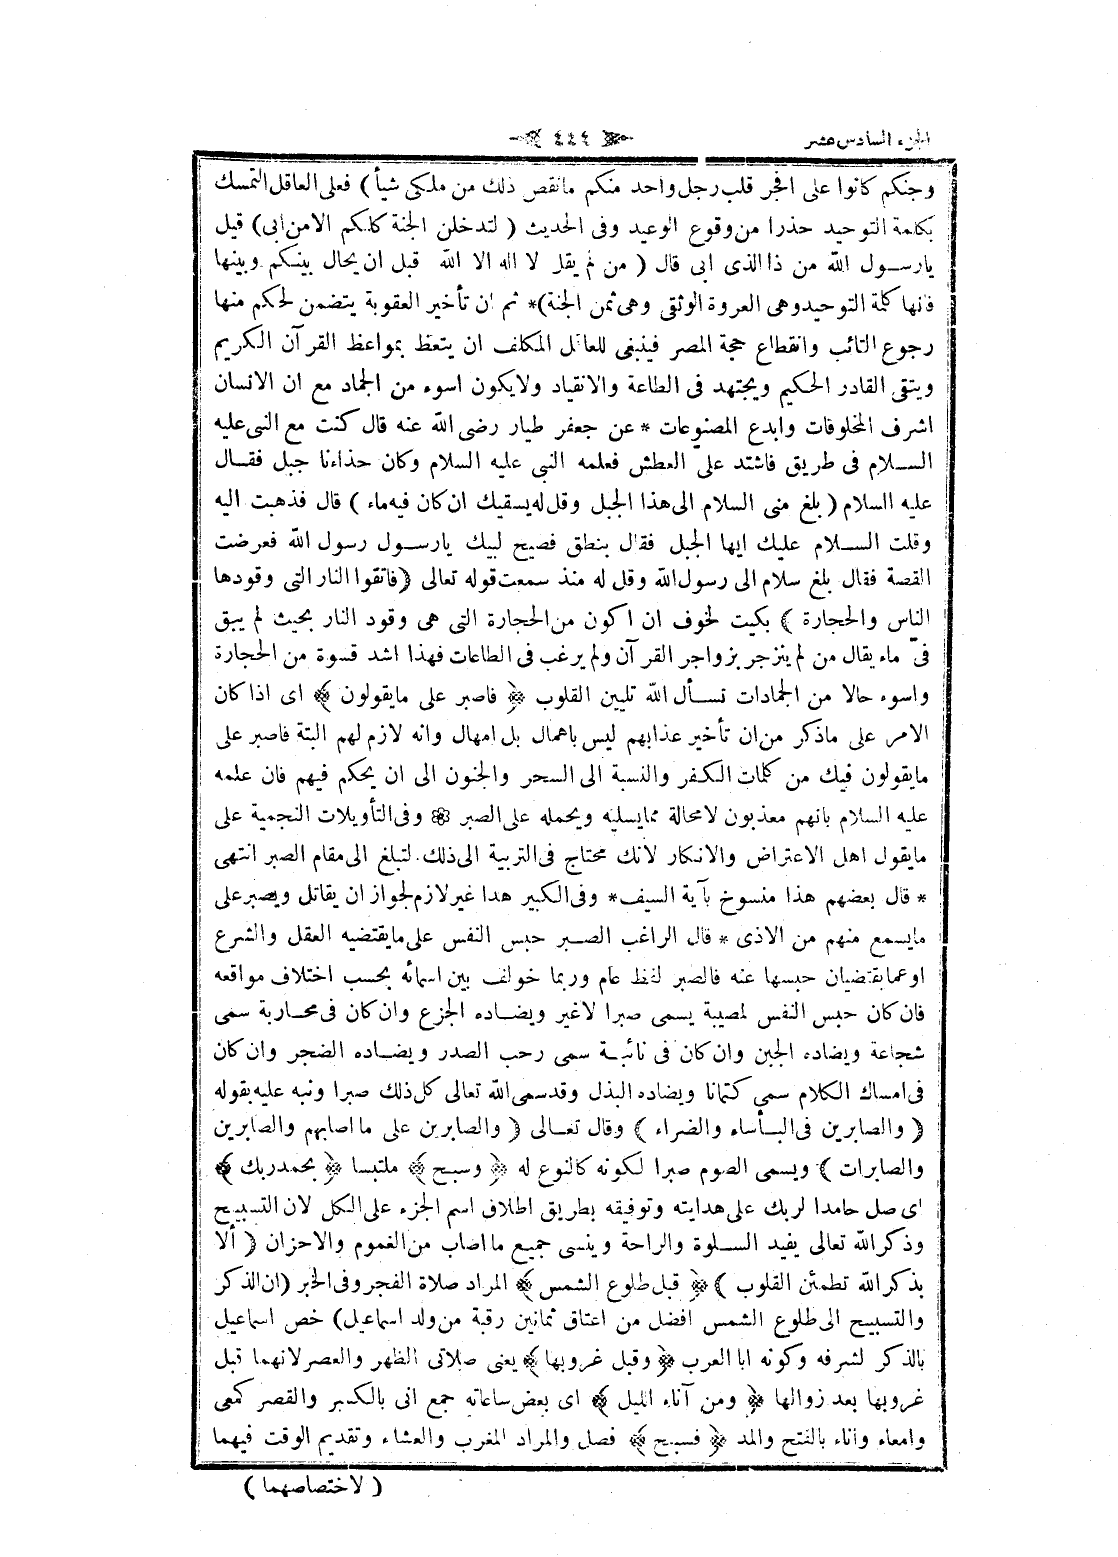 الجزء السادس عشر ٤٤٤
وجنكم كانوا على افجر قلب رجل واحد منكم مانقص ذلك من ملكى شيأ ) فعلى العاقل التمسك
بكلمة التوحيد حذرا من وقوع الوعيد وفى الحديث ( لتدخلن الجنة كلكم الا من ابى) قيل
يارسول الله من ذا الذى ابى قال ( من لم يقل لا اله الا الله قبل ان يحال بينكم وبينها
فانها كلمة التوحيد وهى العروة الوثقى وهى ثمن الجنة)* ثم ان تأخير العقوبة يتضمن لحكم منها
رجوع التائب وانقطاع حجة المصر فينبغى للعاقل المكلف ان يتعظ بمواعظ القرآن الكريم
ويتقى القادر الحكيم ويجتهد فى الطاعة والانقياد ولا يكون اسوء من الجماد مع ان الانسان
اشرف المخلوقات وابدع المصنوعات * عن جعفر طيار رضى الله عنه قال كنت مع النبى عليه
السلام فى طريق فاشتد علىّ العطش فعلمه النبى عليه السلام وكان حذاءنا جبل فقال
عليه السلام ( بلغ منى السلام الى هذا الجبل وقل له يسقيك ان كان فيه ماء ) قال فذهبت اليه
وقلت السلام عليك ايها الجبل فقال بنطق فصيح لبيك يارسول رسول الله فعرضت
القصة فقال بلغ سلام الى رسول الله وقل له منذ سمعت قوله تعالى ( فاتقوا النار التى وقودها
الناس والحجارة ) بكيت لخوف ان اكون من الحجارة التى هى وقود النار بحيث لم يبق
فىّ ماء يقال من لم ينزجر بزواجر القرآن ولم يرغب فى الطاعات فهذا اشد قسوة من الحجارة
واسوء حالا من الجمادات نسأل الله تليين القلوب ﴿ فاصبر على مايقولون ﴾ اى اذا كان
الامر على ماذكر من ان تأخير عذابهم ليس باهمال بل امهال وانه لازم لهم البتة فاصبر على
مايقولون فيك من كلمات الكفر والنسبة الى السحر والجنون الى ان يحكم فيهم فان علمه
عليه السلام بانهم معذبون لا محالة مما يسليه ويحمله على الصبر ❁ وفى التأويلات النجمية على
مايقول اهل الاعتراض والانكار لانك محتاج فى التربية الى ذلك لتبلغ الى مقام الصبر انتهى
* قال بعضهم هذا منسوخ بآية السيف* وفى الكبير هذا غير لازم لجواز ان يقاتل ويصبر على
مايسمع منهم من الاذى * قال الراغب الصبر حبس النفس على مايقتضيه العقل والشرع
او عما يقتضيان حبسها عنه فالصبر لفظ عام وربما خولف بين اسمائه بحسب اختلاف مواقعه
فان كان حبس النفس لمصيبة يسمى صبرا لاغير ويضاده الجزع وان كان فى محاربة سمى
شجاعة ويضاده الجبن وان كان فى نائبة سمى رحب الصدر ويضاده الضجر وان كان
فى امساك الكلام سمى كتمانا ويضاده البذل وقد سمى الله تعالى كل ذلك صبرا ونبه عليه بقوله
( والصابرين فى البأساء والضراء ) وقال تعالى ( والصابرين على ما اصابهم والصابرين
والصابرات ) ويسمى الصوم صبرا لكونه كالنوع له ﴿ وسبح ﴾ ملتبسا ﴿ بحمد ربك ﴾
اى صل حامدا لربك على هدايته وتوفيقه بطريق اطلاق اسم الجزء على الكل لان التسبيح
وذكر الله تعالى يفيد السلوة والراحة وينسى جميع ما اصاب من الغموم والاحزان ( ألا
بذكر الله تطمئن القلوب ) ﴿ قبل طلوع الشمس ﴾ المراد صلاة الفجر وفى الخبر (ان الذكر
والتسبيح الى طلوع الشمس افضل من اعتاق ثمانين رقبة من ولد اسماعيل) خص اسماعيل
بالذكر لشرفه وكونه ابا العرب ﴿ وقبل غروبها ﴾ يعنى صلاتى الظهر والعصر لانهما قبل
غروبها بعد زوالها ﴿ ومن آناء الليل ﴾ اى بعض ساعاته جمع انى بالكسر والقصر كمعى
وامعاء واناء بالفتح والمد ﴿ فسبح ﴾ فصل والمراد المغرب والعشاء وتقديم الوقت فيهما
( لاختصاصهما )